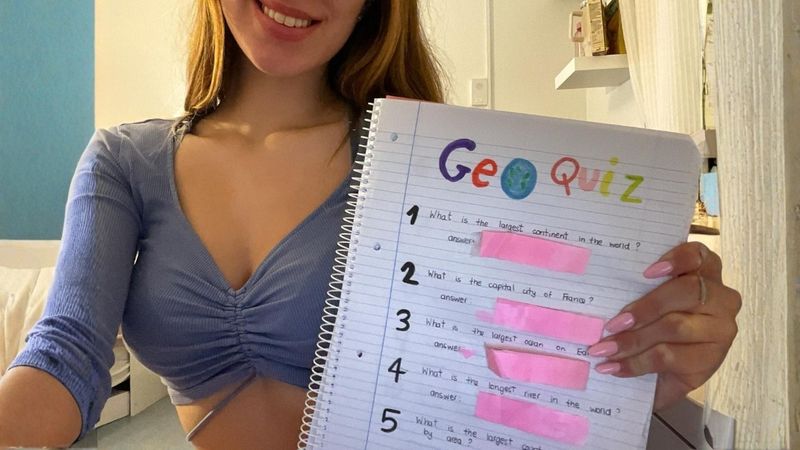 Geo Quiz
1 What is the largest continent in the world ?
answer:
2 What is the capital city of France ?
answer:
3 What is the largest ocean on
answer:
4 What is the longest river in the world ?
answer:
5 What is the largest
by area ?